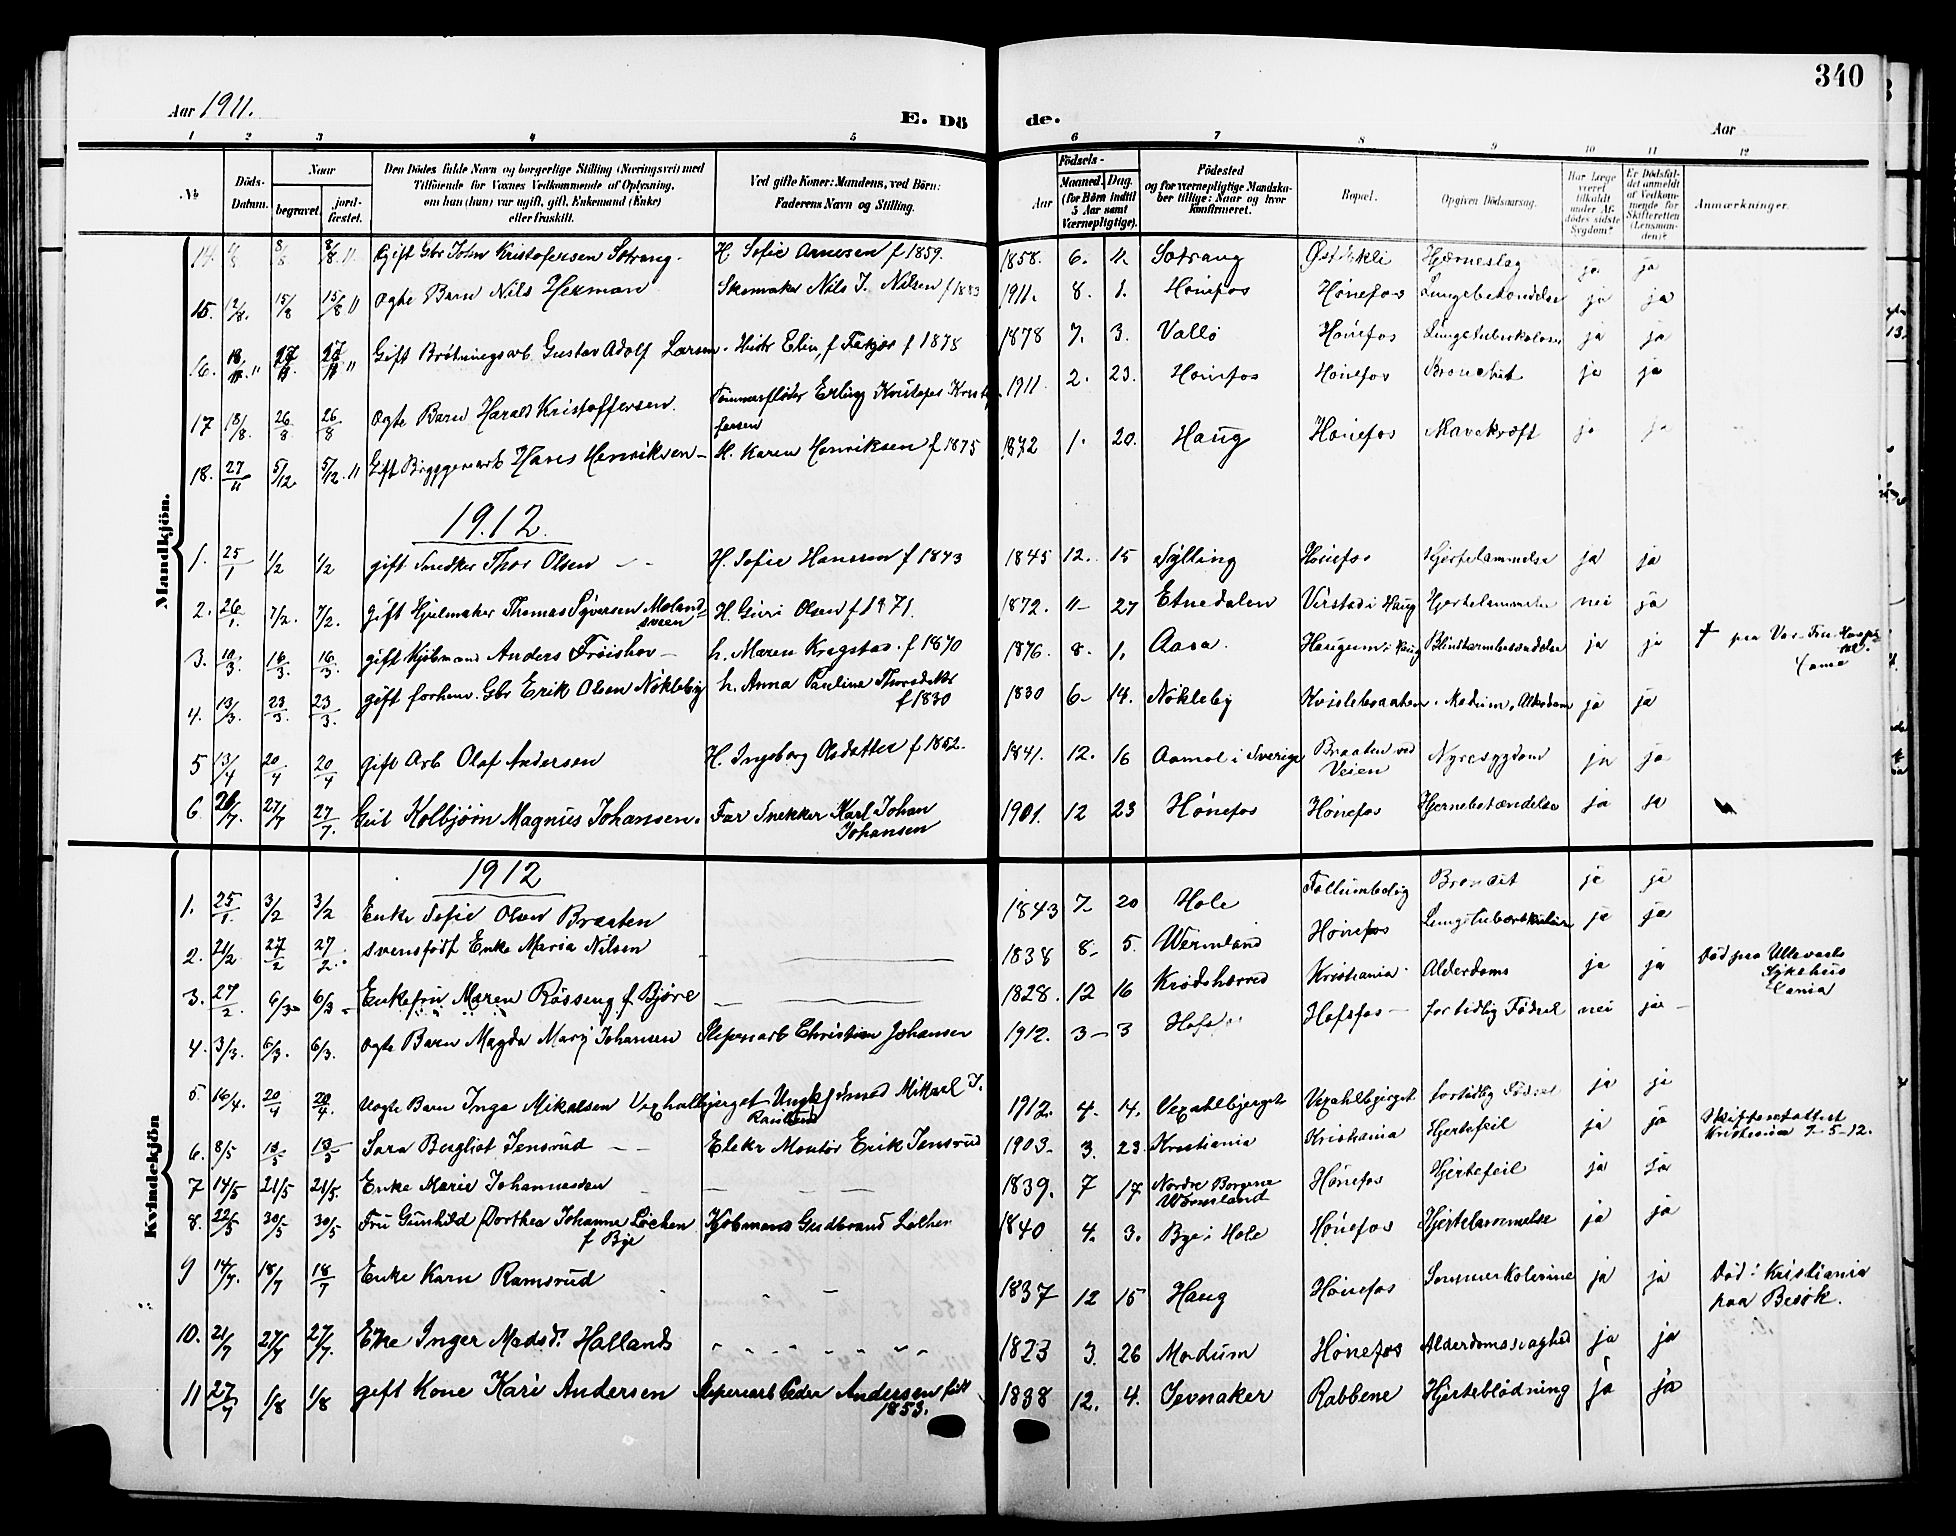 340
Aar 1911.
E. Dö
de.
Aar
1 2 3 4 5 6 7 8 9 10 11 12
No
Döds-Datum.
Naar
begravet.
jord-festet.
Den Dödes fulde Navn og borgerlige Stilling (Næringsvei) med
Tilföiende for Voxnes Vedkommende af Oplysning,
om han (hun) var ugift, gift, Enkemand (Enke)
eller fraskilt.
Ved gifte Koner: Mandens, ved Börn:
Faderens Navn og Stilling.
Födsels-
Aar
Maaned. Dag.
(for Börn indtil
5 Aar samt
Værnepligtige).
Födested
og for værnepligtige Mandska-
ber tillige: Naar og hvor
konfirmeret.
Bopæl.
Opgiven Dödsaarsag.
Har Læge
været
tilkaldt
under Af-
dødes sidste
Sygdom?
Er Dødsfal-
det anmeldt
af Vedkom-
mende for
Skifteretten
(Lensman-
den)?
Anmærkninger.
Mandkjön.
14. 8/8 8/8 Gift Gbr John Kristofersen Sötrang. H. Sofie Arnesen f 1859. 1858. 6. 11. Sötrang Hjerneslag ja ja
15. 12/8. 15/8 15/8 Ægte Barn Nils Herman Skomaker Nils J. Nilsen f 1883 1911. 8. 1. Hönefos Hönefos Lungebetændelse ja ja
16. Gift Brötningsarb. Gustav Adolf Larsen. Hustr Elin f 1878 1878 7. 3. Vallö Hönefos Lungetuberkulose ja ja
17 18/8. 26/8 26/8 Ægte Barn Harald Kristoffersen. Tömmerflöder Erling Kristofer Kristof-
fersen 1911. 2. 23. Hönefos Hönefos Bronchit ja ja
18. 27/11 5/12 5/12. Gift Bryggeriarb Hans Henriksen - H. Karen Henriksen f 1875 1872 1. 20. Haug Hönefos Mavekræft ja ja
1912.
1. 25/1 1/2 1/2 gift Snedker Thor Olsen H. Sofie Hansen f 1843 1845 12. 15 Sylling Hönefos Hjertelammelse ja ja
2. 26/1. 7/2. 7/2. gift Hjulmaker Thomas Syversen Moland-
sveen H. Guri Olsen f 1871. 1872. 11- 27 Etnedalen Virstad i Haug Hjertelammelse nei ja
3. 10/3. 16/3. 16/3. gift Kjöbmand Anders Fröishov - h. Maren Kragstad. f 1870 1876. 8. 1. Aasa. Haugum i Haug Blindtarmbetændelse ja ja † paa Vor Frue Hospi-
tal.
Xania
4. 13/3. 23/3. 23/3. gift forhenv. Gbr Erik Olsen Nökleby h. Anna Pauline Thorsdatter
f 1830 1830 6- 14. Nökleby Modum. Alderdom ja ja
5 13/4 20/4 20/4 gift Arb Olaf Andersen H. Ingeborg Olsdatter f 1852. 1841. 12. 16 Aamol i Sverige Braaten ved
Veien Nyresygdom ja ja
6 27/7 27/7. Gut Kolbjörn Magnus Johansen. Far Snekker Karl Johan
Johansen 1901. 12 23 Hönefos Hönefos Hjernebetændelse ja ja
Kvindekjön
1912
1. 25/1. 3/2 3/2 Enke Sofie Olsen Braaten 1843 7- 20 Hole Follumbolig Broncit ja ja
2. 21/2 27/2 27/2. svenskfödt Enke Maria Nilsen 1838 8- 5. Wermland Hönefos Lungetuberkulose ja ja
3. 27/2. 6/3 6/3 Enkefru Maren Rösseng f. Björe 1828. 12 16 Krödsherred Kristiania Alderdoms ja ja Död paa Ullevaals
Sykehus
Xania
4. 3/3. 6/3. 6/3. Ægte Barn Magda Mary Johansen Sliperiarb Christian Johansen 1912. 3- 3 Hofsfos Hofsfos - for tidlig Födsel nei ja
5. 16/4. 20/4 20/4. Uægte Barn Inga Mikalsen Vexhalbjerget Ungk f Smed Mikael J. 1912. 4. 14. Vexahlbjerget Vexahlbjerget for tidlig Födsel ja ja
6. 8/5 13/5 13/5 Sara Bergliot Jensrud Elektr Montör Erik Jensrud 1903. 3. 23. Kristiania Kristiania Hjertefeil ja ja Skifteattest
Kristiania 7-5-12.
7 14/5 21/5 21/5. Enke Marie Johannesdan 1839. 7 17 Nordre Borgene
Wermland Hönefos Hjertefeil ja ja
8. 22/5 30/5 30/5 Fru Gunhild Dorthea Johanne Löcken
f Bye Kjöbmand Gudbrand Löcken 1840 4. 3. Bye i Hole Hönefos Hjertelammelse ja ja
9 14/7. 18/7 18/7 Enke Karn Ramsrud 1837 12 15 Haug Hönefos Sommerkolerine ja ja Död i Kristiania
paa Besök.
10. 21/7 27/7 27/7. Enke Inger Madsdt. Halland 1823 3. 26 Modum Hönefos Alderdomssvaghed ja ja
11 27/7 1/8 1/8 gift Kone Kari Andersen Sliperiarb Peder Andersen födt
1853. 1838 12. 4. Jevnaker Rabbene Hjerteblödning ja ja